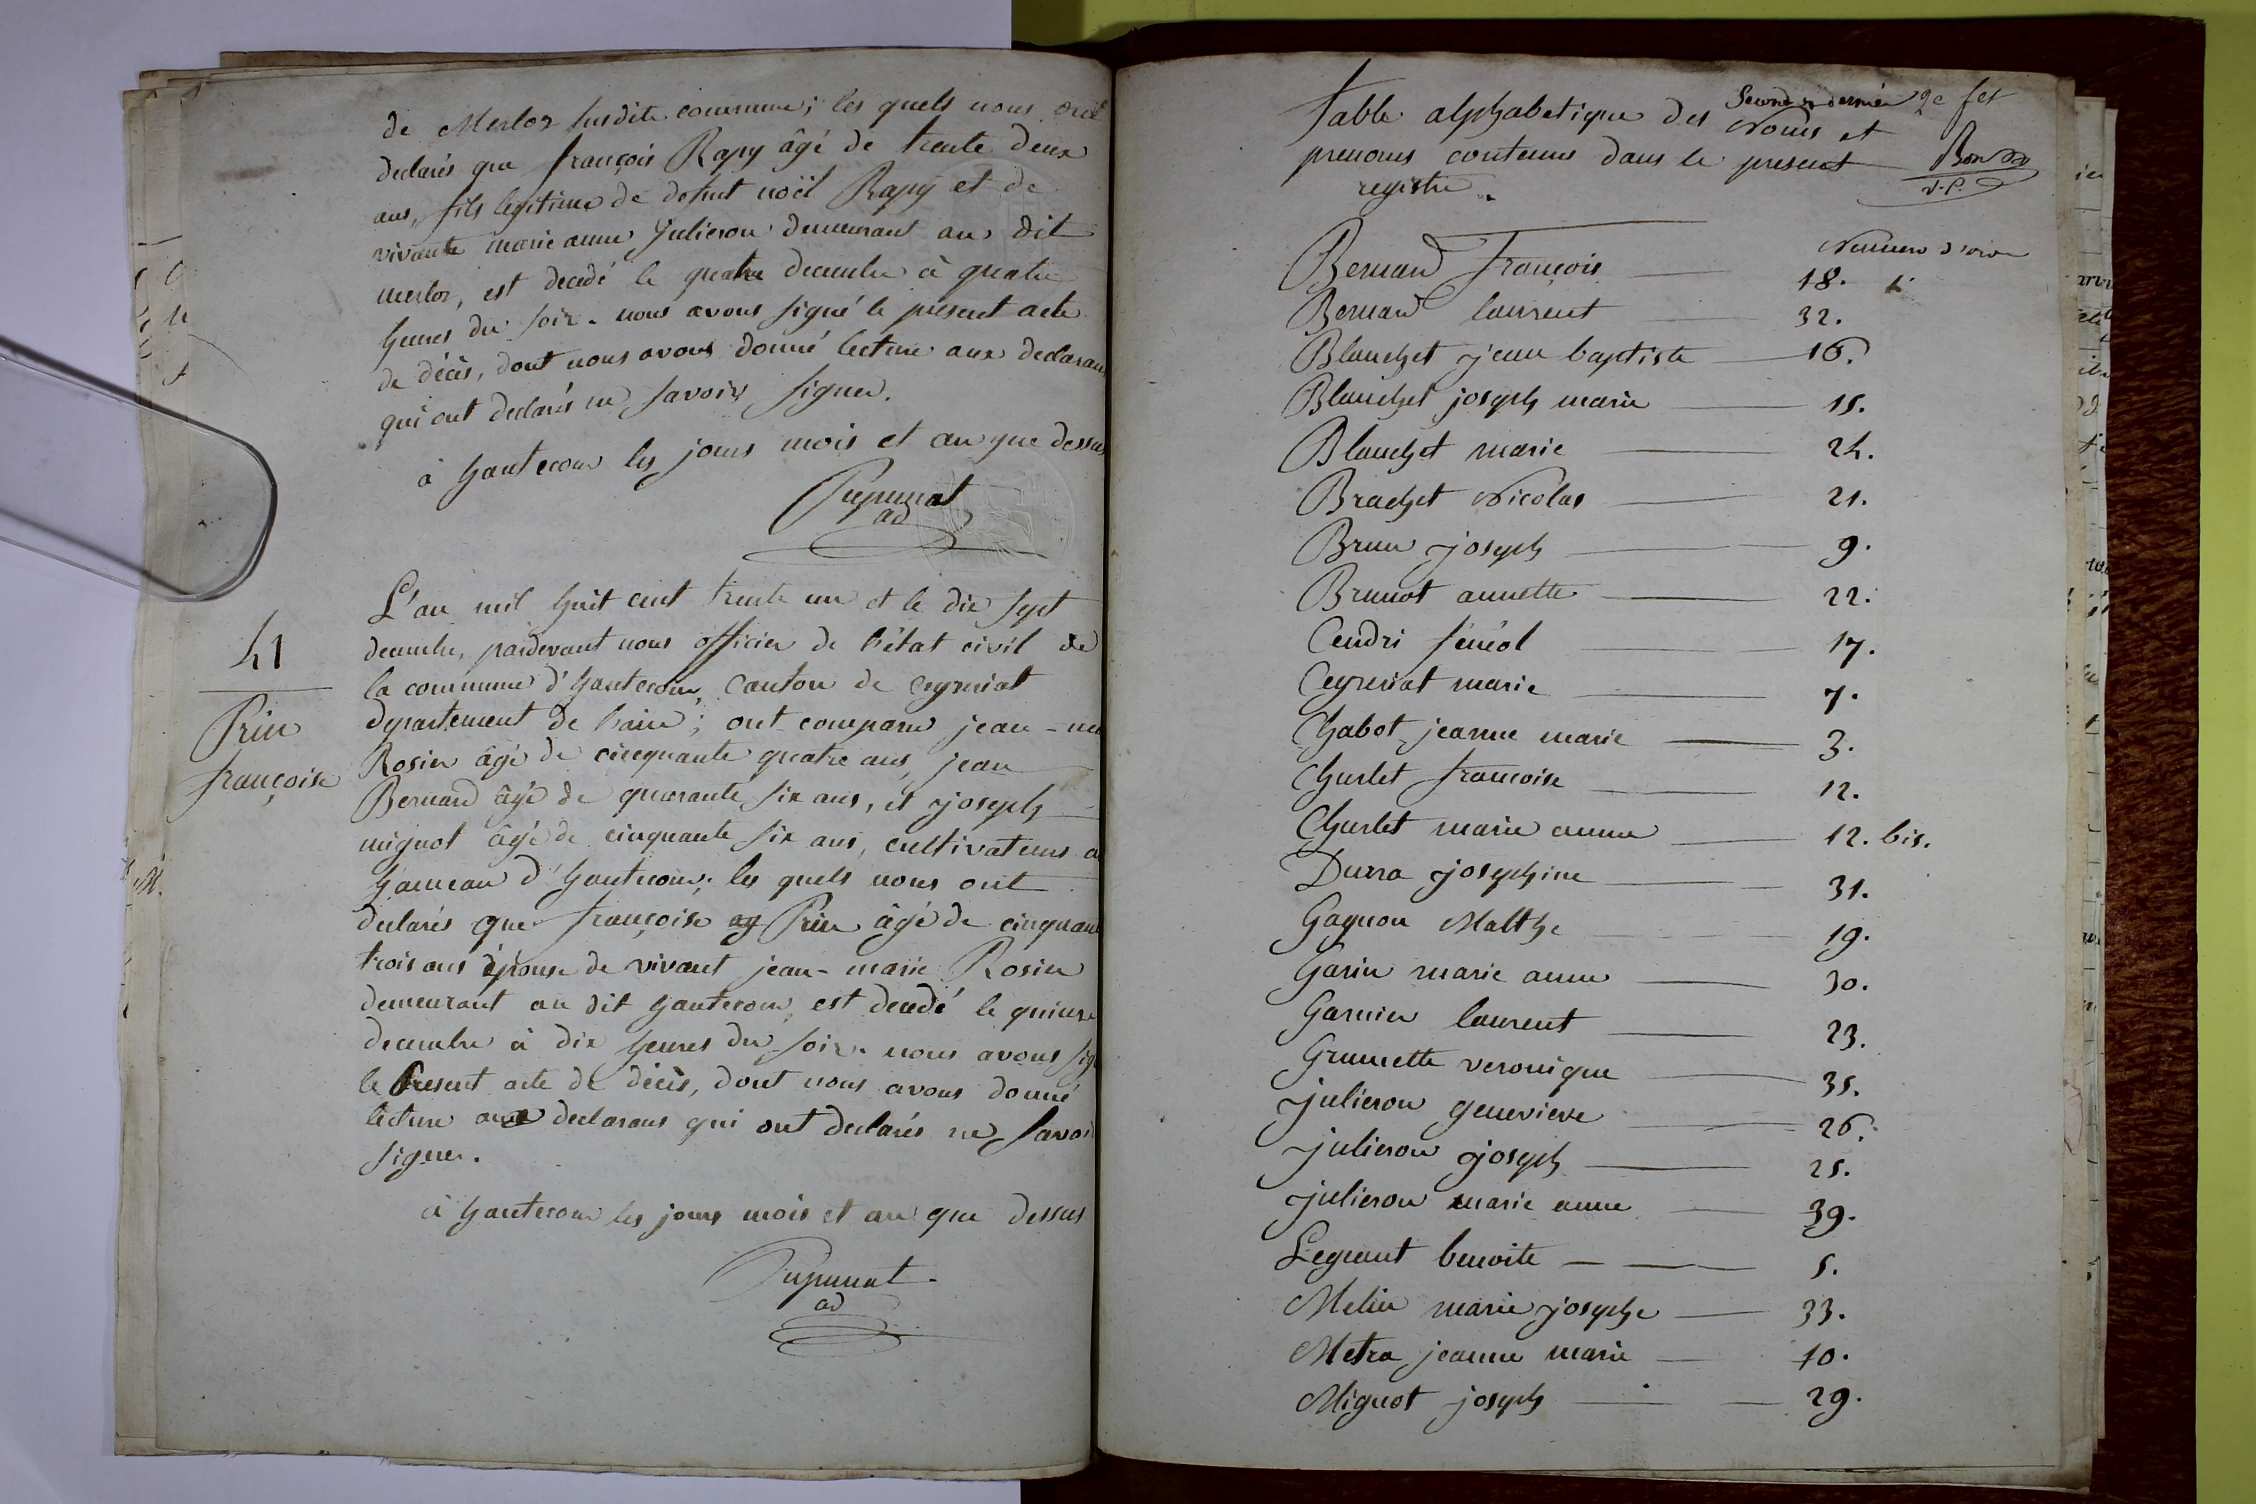 de Merloz susdite commune; les quels nous ont
declarés que françois Rapy âgé de trente deux
ans, fils legitime de defunt noël Rapy et de
vivante marie anne Julieron demeurant au dit
merloz, est decedé le quatre decembre à quatre
heures du soir. nous avons signé le présent acte
de décès, dont nous avons donné lecture aux declarans
qui ont declarés ne savoir signer.
à hautecour les jours mois et an que dessus
Pupunat
ad
41
Prin
françoise
L'an mil huit cent trente un et le dix sept
decembre, pardevant nous officier de l'état civil de
la commune d'hautecour, canton de Ceyzeriat
departement de l'ain; ont comparu jean-
Rosier âgé de cinquante quatre ans, jean
Bernard âgé de quarante six ans, et joseph
mignot âgé de cinquante six ans, cultivateurs a
hameau d'hautecour; les quels nous ont
declarés que françoise Prin âgé de cinquante
trois ans épouse de vivant jean-marie Rosier
demeurant au dit hautecour, est decedé le quinze
decembre à dix heures du soir. nous avons sig
le Present acte de décès, dont nous avons donné
lecture aux declarans qui ont declarés ne savoir
signer.
à hautecour les jours mois et an que dessus
Pupunat
ad
Second et dernier 2e fet
Table alphabetique des Noms et
prenoms contenus dans le present
registre.
Numero d'ordre
Bernard françois 18.
Bernard laurent 32.
Blanchet jean baptiste 16.
Blanchet joseph marie 15.
Blanchet marie 24.
Brachet Nicolas 21.
Brun joseph 9.
Brunot annette 22.
Cendri féréol 17.
Ceyzeriat marie 7.
Chabot jeanne marie 3.
Churlet francoise 12.
Churlet marie anne 12. bis.
Durra josephine 31.
Gagnon Malthe 19.
Garin marie anne 30.
Garnier laurent 23.
Grumette veronique 35.
julieron genevieve 26.
julieron joseph 25.
julieron marie anne 39.
Legrant benoite 5.
Melin marie josephe 33.
Metra jeanne marie 10.
Mignot joseph 29.